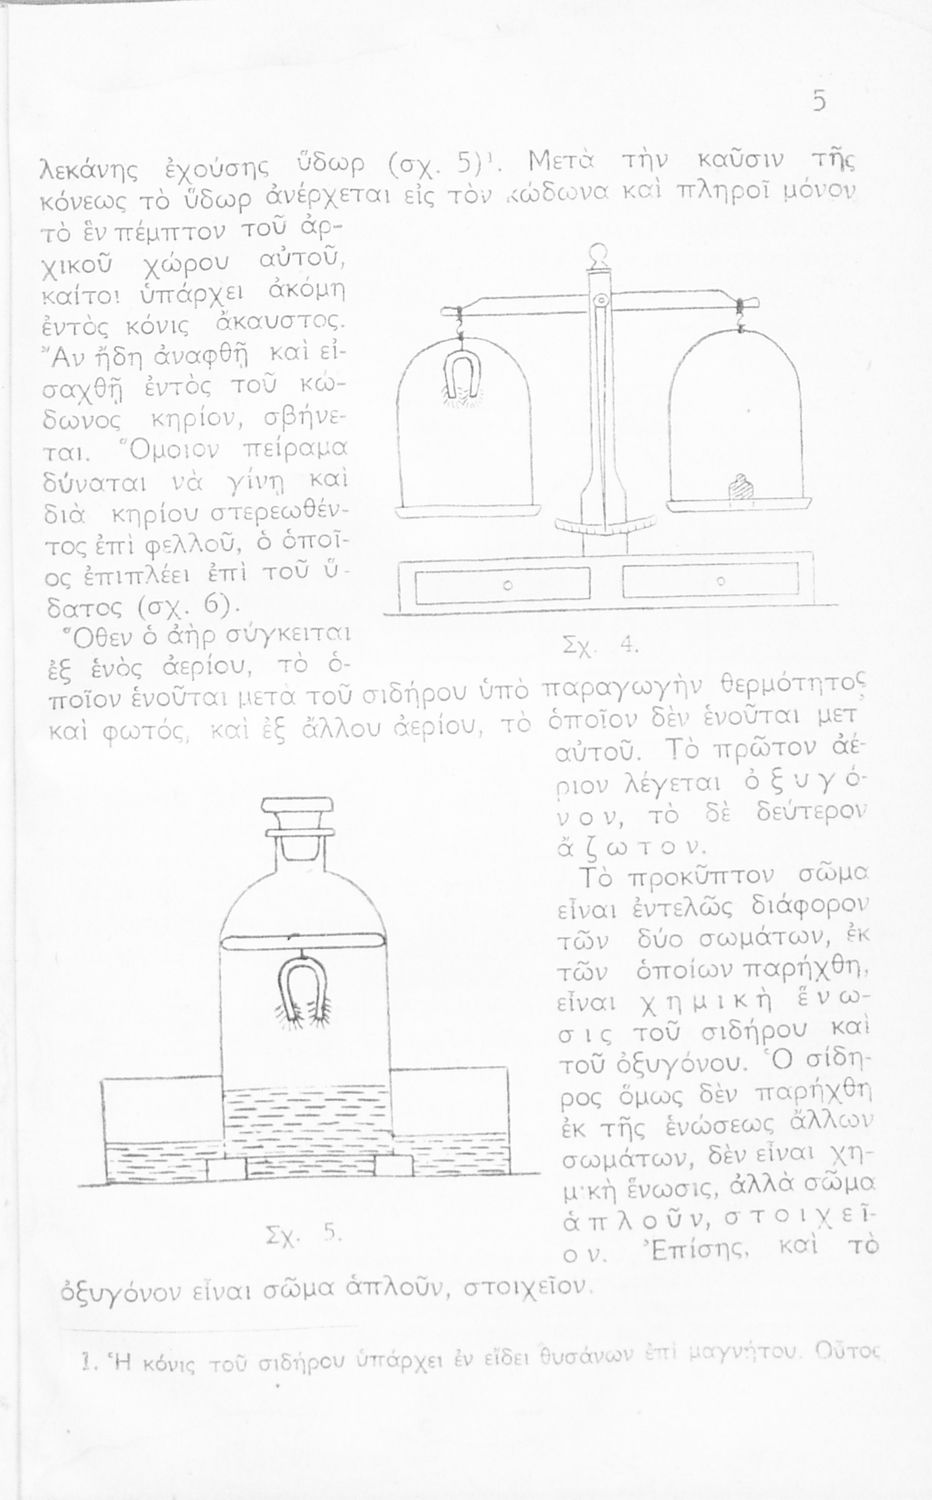 5
λεκάνης ἐχούσης ὕδωρ (σχ. 5)¹. Μετὰ τὴν καῦσιν τῆς
κόνεως τὸ ὕδωρ ἀνέρχεται εἰς τὸν κώδωνα καὶ πληροῖ μόνον
τὸ ἓν πέμπτον τοῦ ἀρ-
χικοῦ χώρου αὐτοῦ,
καίτοι ὑπάρχει ἀκόμη
ἐντὸς κόνις ἄκαυστος.
Ἂν ἤδη ἀναφθῇ καὶ εἰ-
σαχθῇ ἐντὸς τοῦ κώ-
δωνος κηρίον, σβήνε-
ται. Ὅμοιον πείραμα
δύναται νὰ γίνῃ καὶ
διὰ κηρίου στερεωθέν-
τος ἐπὶ φελλοῦ, ὁ ὁποῖ-
ος ἐπιπλέει ἐπὶ τοῦ ὕ-
δατος (σχ. 6).
Ὅθεν ὁ ἀὴρ σύγκειται
ἐξ ἑνὸς ἀερίου, τὸ ὁ-
Σχ. 4.
ποῖον ἑνοῦται μετὰ τοῦ σιδήρου ὑπὸ παραγωγὴν θερμότητος
καὶ φωτός, καὶ ἐξ ἄλλου ἀερίου, τὸ ὁποῖον δὲν ἑνοῦται μετ'
αὐτοῦ. Τὸ πρῶτον ἀέ-
ριον λέγεται ὀξυγό-
νον, τὸ δὲ δεύτερον
ἄζωτον.
Τὸ προκῦπτον σῶμα
εἶναι ἐντελῶς διάφορον
τῶν δύο σωμάτων, ἐκ
τῶν ὁποίων παρήχθη,
εἶναι χημικὴ ἕνω-
σις τοῦ σιδήρου καὶ
τοῦ ὀξυγόνου. Ὁ σίδη-
ρος ὅμως δὲν παρήχθη
ἐκ τῆς ἑνώσεως ἄλλων
σωμάτων, δὲν εἶναι χη-
μικὴ ἕνωσις, ἀλλὰ σῶμα
ἁπλοῦν, στοιχεῖ-
ον. Ἐπίσης, καὶ τὸ
Σχ. 5.
ὀξυγόνον εἶναι σῶμα ἁπλοῦν, στοιχεῖον.
1. Ἡ κόνις τοῦ σιδήρου ὑπάρχει ἐν εἴδει θυσάνων ἐπὶ μαγνήτου. Οὗτος